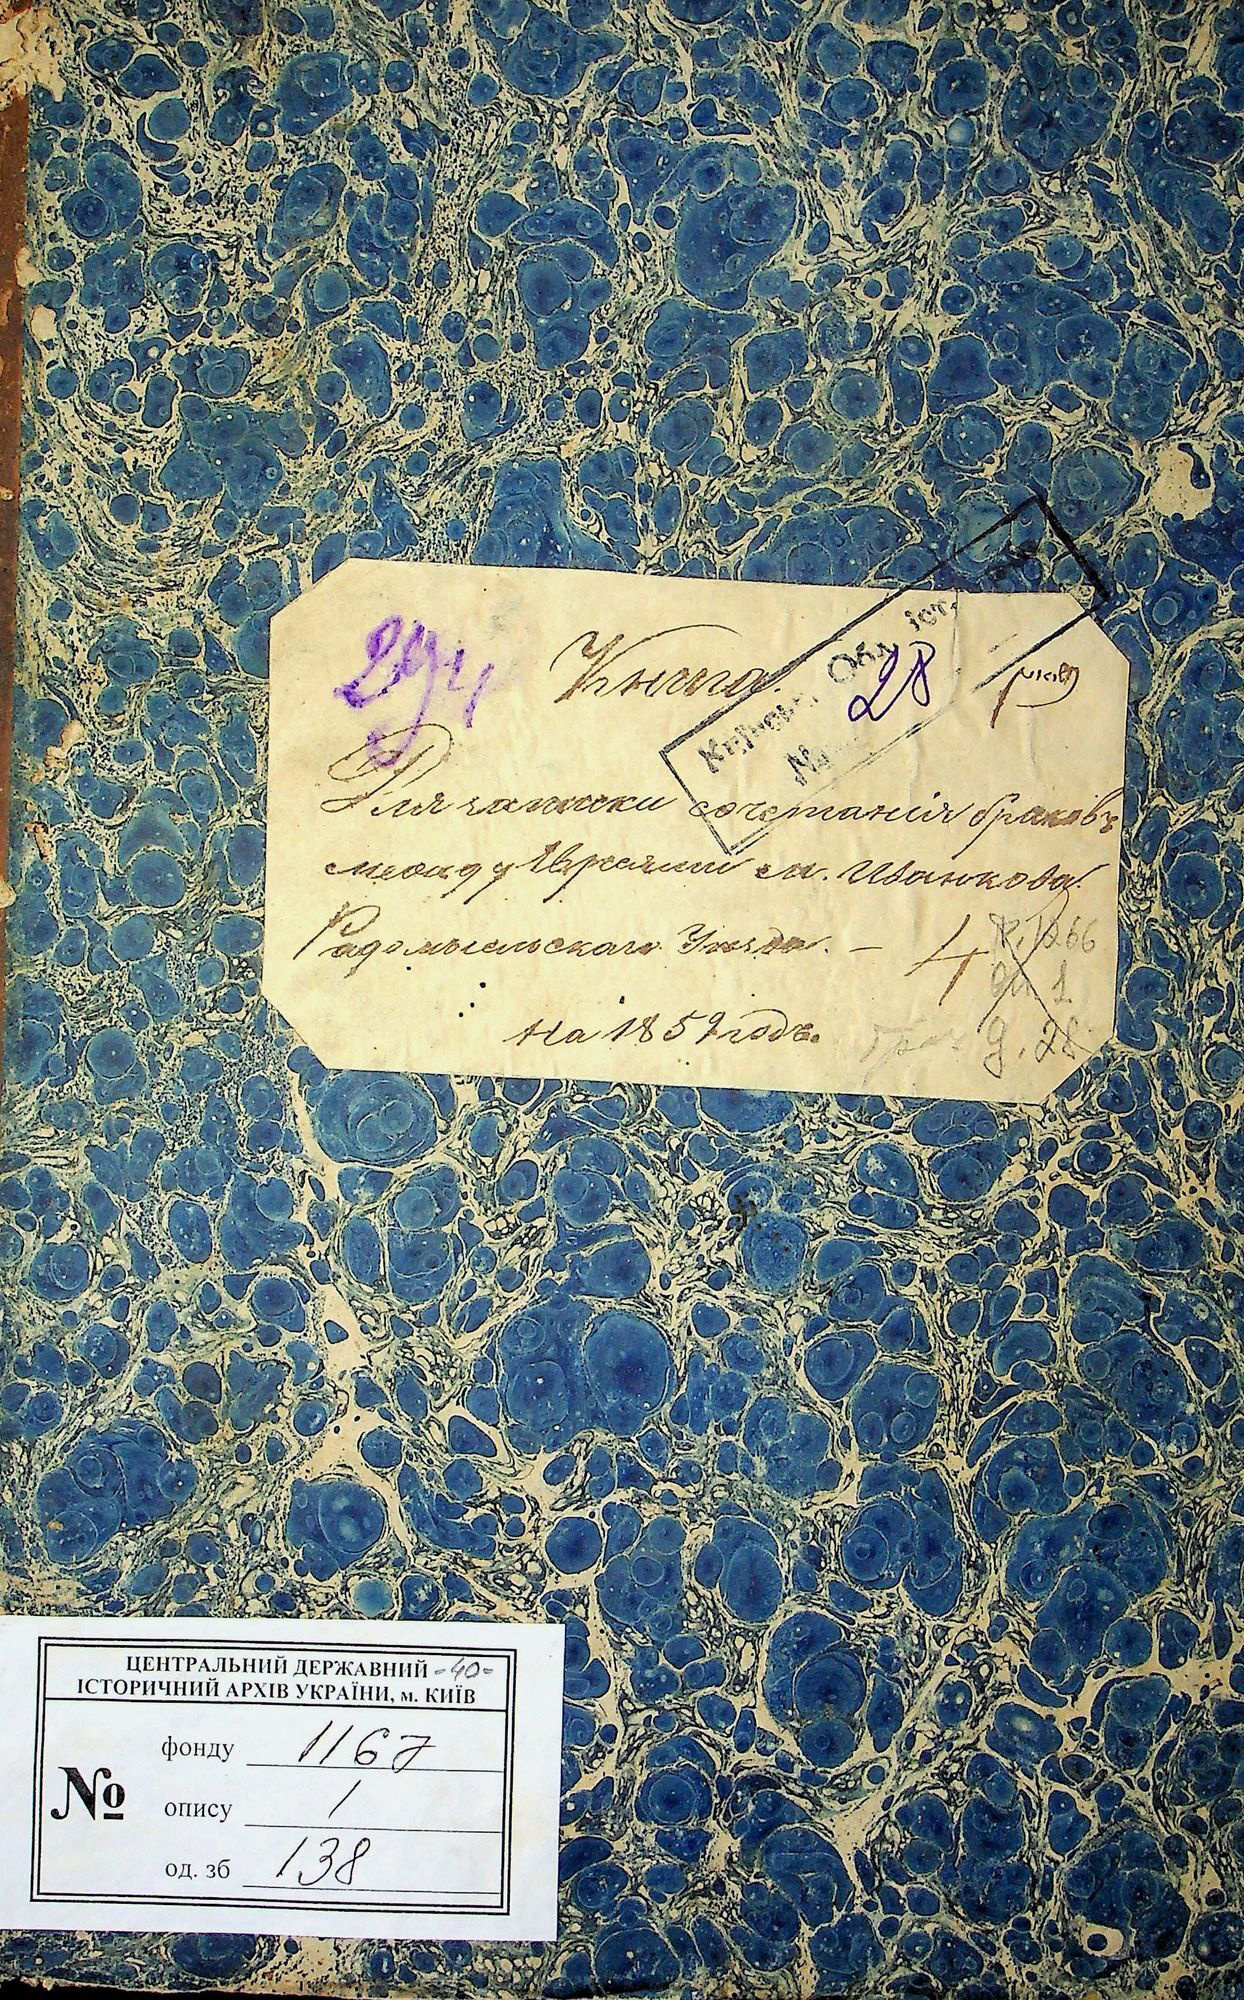 294
Книга.
28
Обл. іст.
№
Для записки сочетанія браковъ
между Евреями м. Иванкова
Радомысльскаго Уѣзда. — 4
на 1859 годъ.
Ф. 1266
оп 1
д. 28
ЦЕНТРАЛЬНИЙ ДЕРЖАВНИЙ -40-
ІСТОРИЧНИЙ АРХІВ УКРАЇНИ, м. КИЇВ
фонду 1167
№ опису 1
од. зб 138